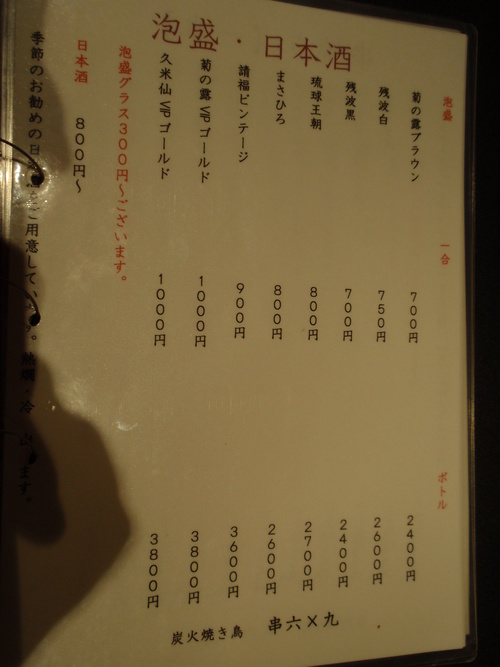 泡盛・日本酒
泡盛 一合 ボトル
菊の露ブラウン 700円 2400円
残波白 750円 2600円
残波黒 700円 2400円
琉球王朝 800円 2700円
まさひろ 800円 2600円
請福ビンテージ 900円 3600円
菊の露VIPゴールド 1000円 3800円
久米仙VIPゴールド 1000円 3800円
泡盛グラス300円～ございます。
日本酒 800円～
季節のお勧めの日 ご用意して 。 冷 ます。
炭火焼き鳥 串六×九